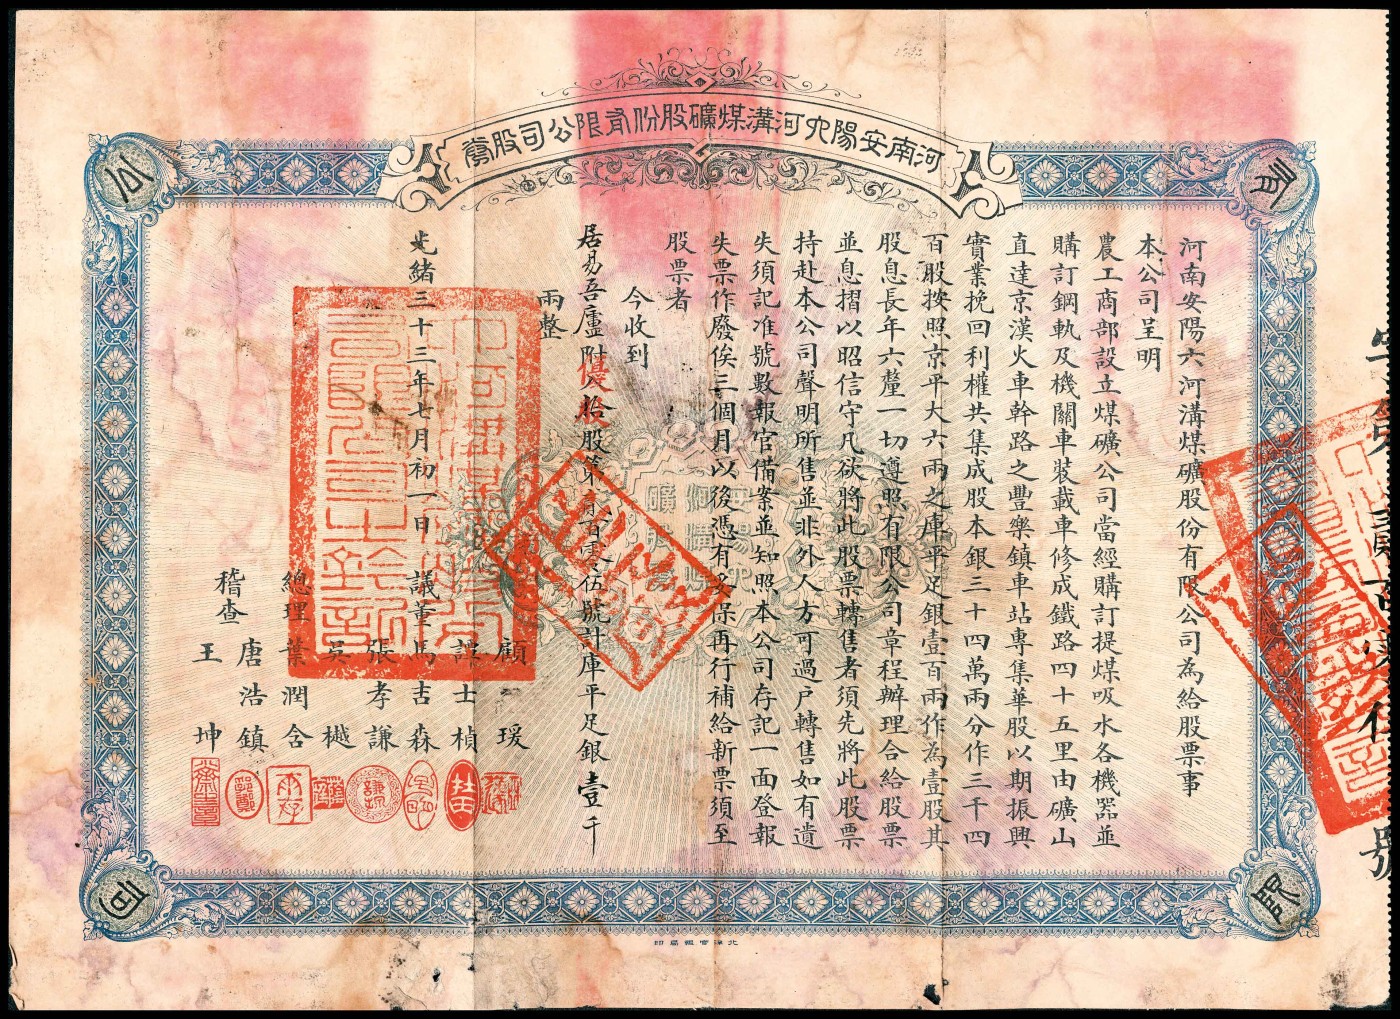 河南安陽六河溝煤礦股份有限公司股票
有
限
公
司
河南安陽六河溝煤礦股份有限公司為給股票事
本公司呈明
農工商部設立煤礦公司當經購訂提煤吸水各機器並
購訂鋼軌及機關車裝載車修成鐵路四十五里由礦山
直達京漢火車幹路之豐樂鎮車站專集華股以期振興
實業挽回利權共集成股本銀三十四萬兩分作三千四
百股按照京平大六兩之庫平足銀壹百兩作為壹股其
股息長年六釐一切遵照有限公司章程辦理合給股票
並息摺以昭信守凡欲將此股票轉售者須先將此股票
持赴本公司聲明所售並非外人方可過戶轉售如有遺
失須記准號數報官備案並知照本公司存記一面登報
失票作廢俟三個月以後憑有妥保再行補給新票須至
股票者
今收到
居易吾廬附優拾股第貳百零伍號計庫平足銀壹千
兩整
光緒三十三年七月初一日
顧瑗
議董
譚士楨
馬吉森
張孝謙
吳樾
總理
葉潤含
唐浩鎮
稽查
王坤
號
北洋官報局印